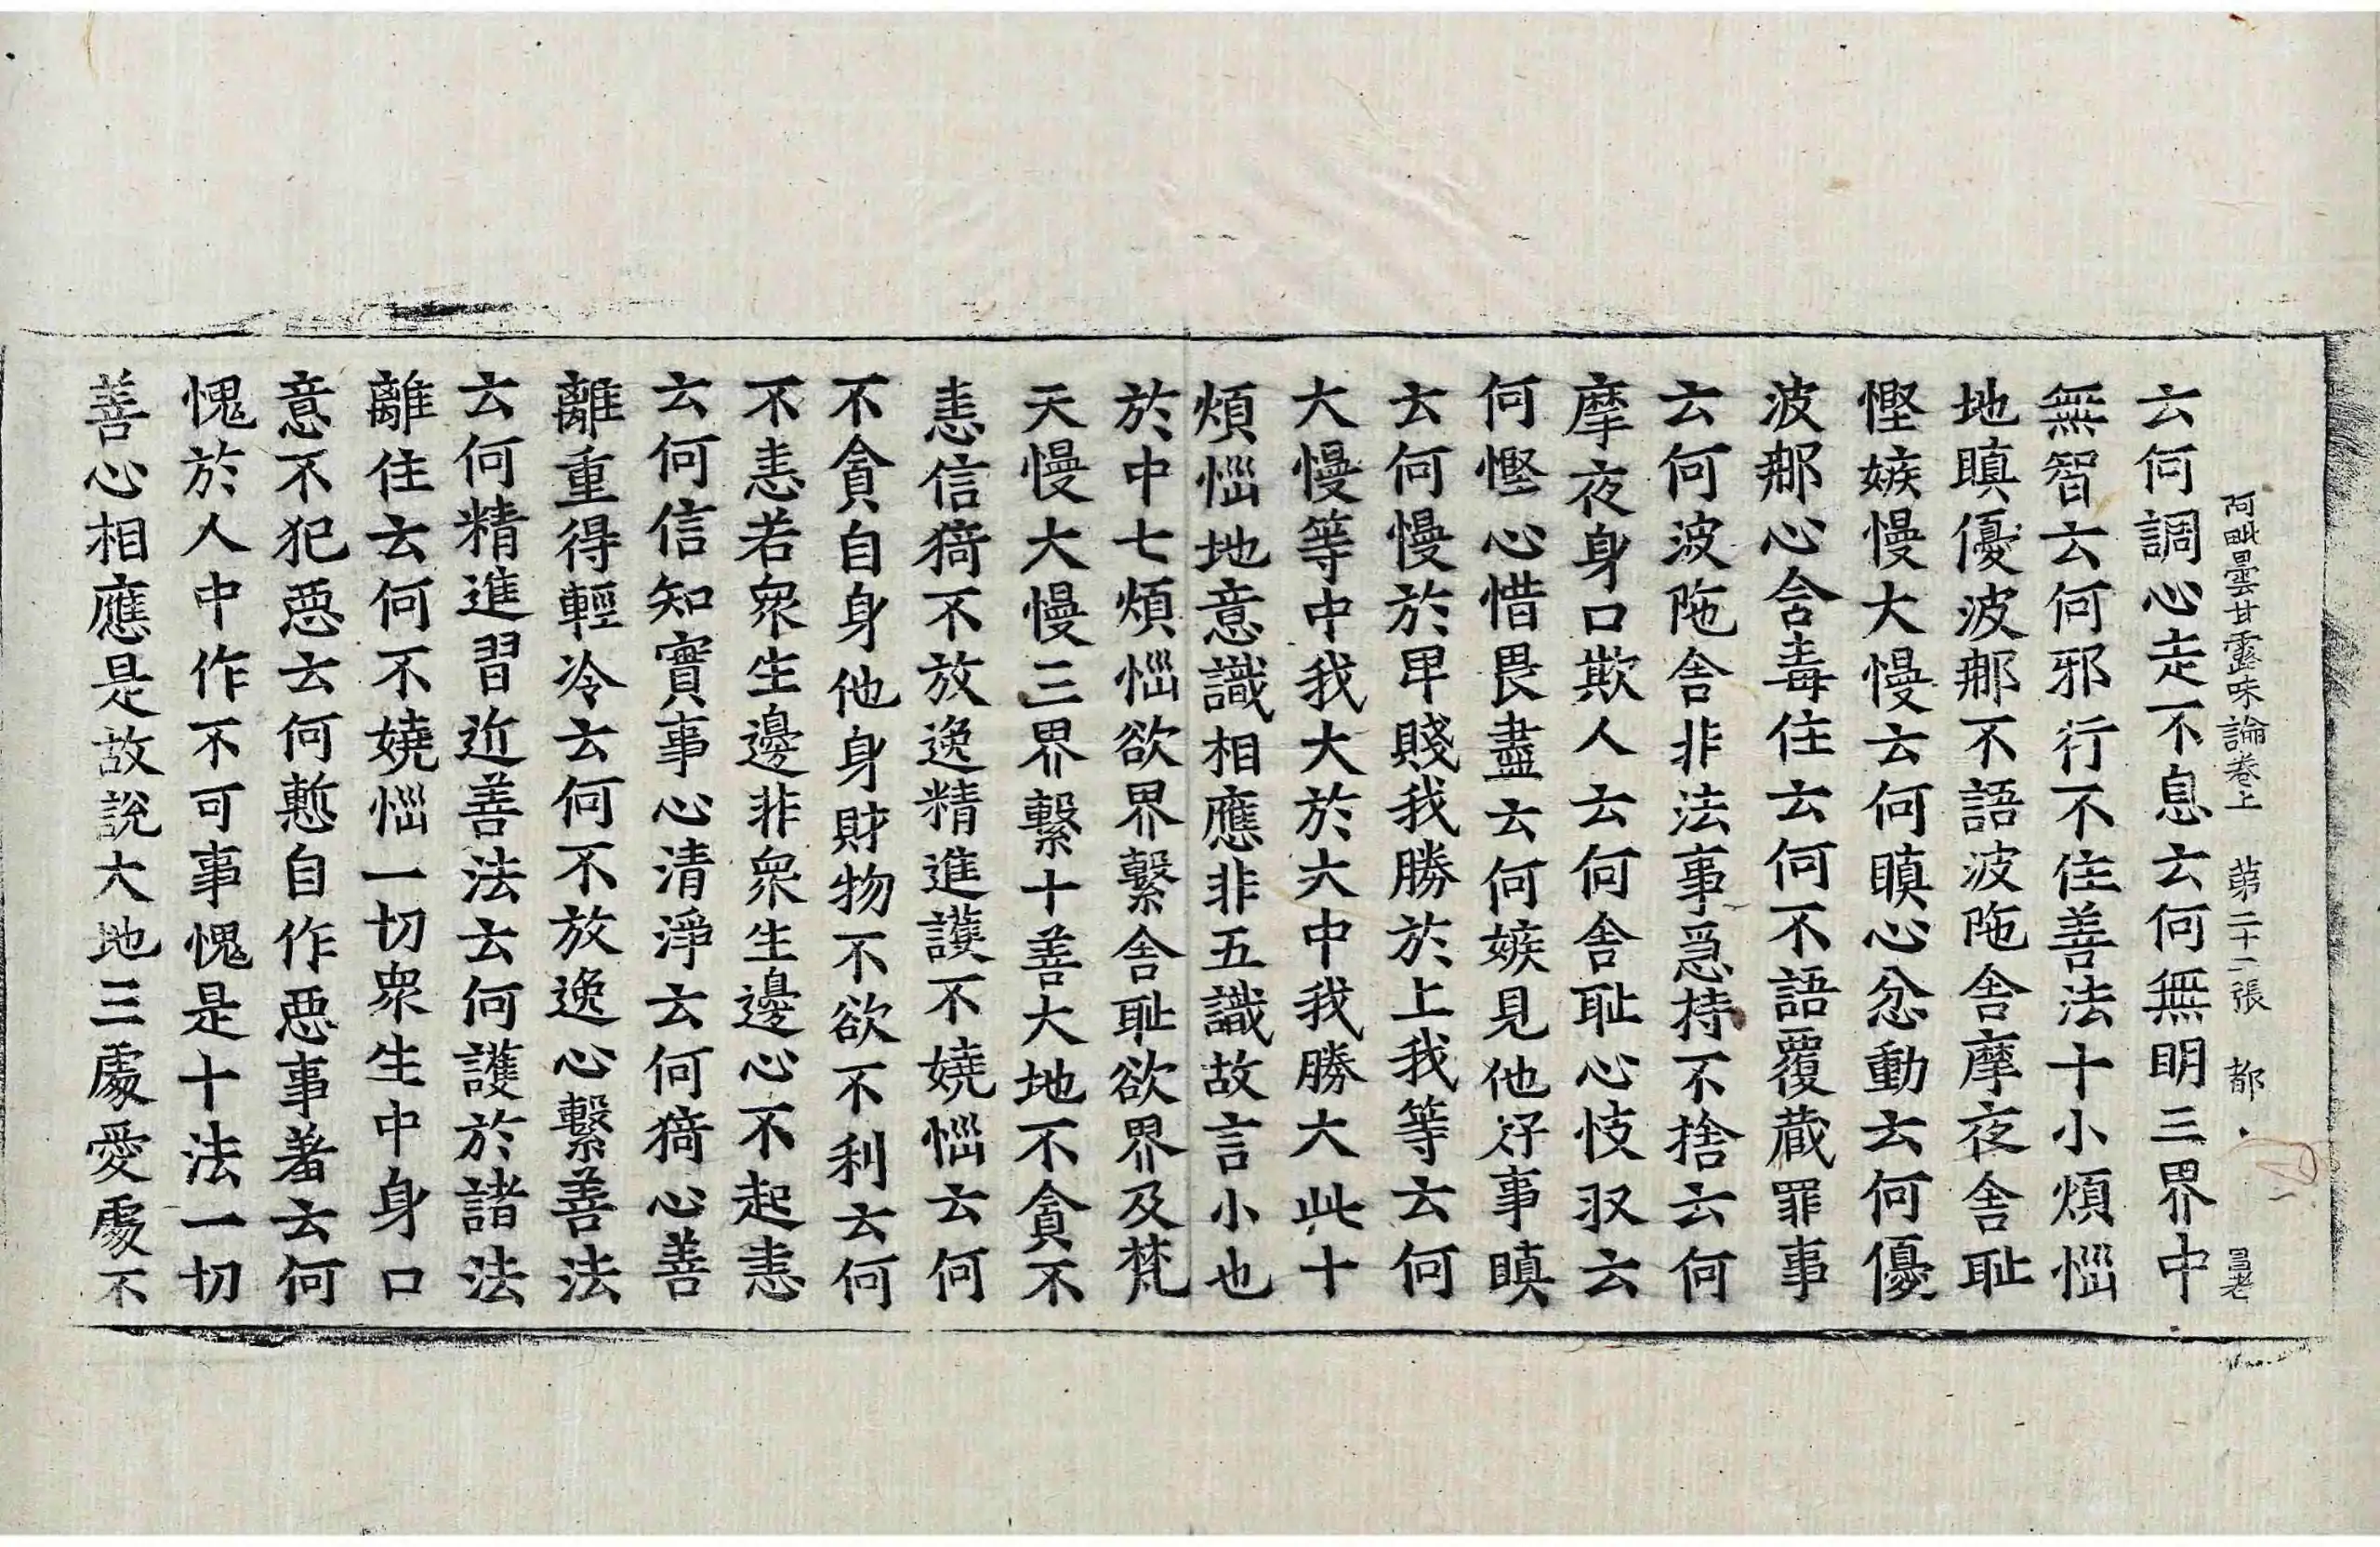 阿毗曇甘露味論卷上 第二十二張 都 昌老
云何調心走不息云何無明三界中
無智云何邪行不住善法十小煩惱
地瞋優波那不語波陁舍摩夜舍耻
慳嫉慢大慢云何瞋心忿動云何優
波那心含毒住云何不語覆蔵罪事
云何波陁舍非法事急持不捨云何
摩夜身口欺人云何舍耻心忮㕛云
何慳心惜畏盡云何嫉見他好事瞋
云何慢於卑賤我勝於上我等云何
大慢等中我大於大中我勝大此十
煩惱地意識相應非五識故言小也
於中七煩惱欲界繫舍耻欲界及梵
天慢大慢三界繫十善大地不貪不
恚信猗不放逸精進護不嬈惱云何
不貪自身他身財物不欲不利云何
不恚若衆生邊非衆生邊心不起恚
云何信知實事心清淨云何猗心善
離重得輕冷云何不放逸心繫善法
云何精進習近善法云何護於諸法
離住云何不嬈惱一切衆生中身口
意不犯惡云何慙自作惡事著云何
愧於人中作不可事愧是十法一切
善心相應是故說大地三處愛處不